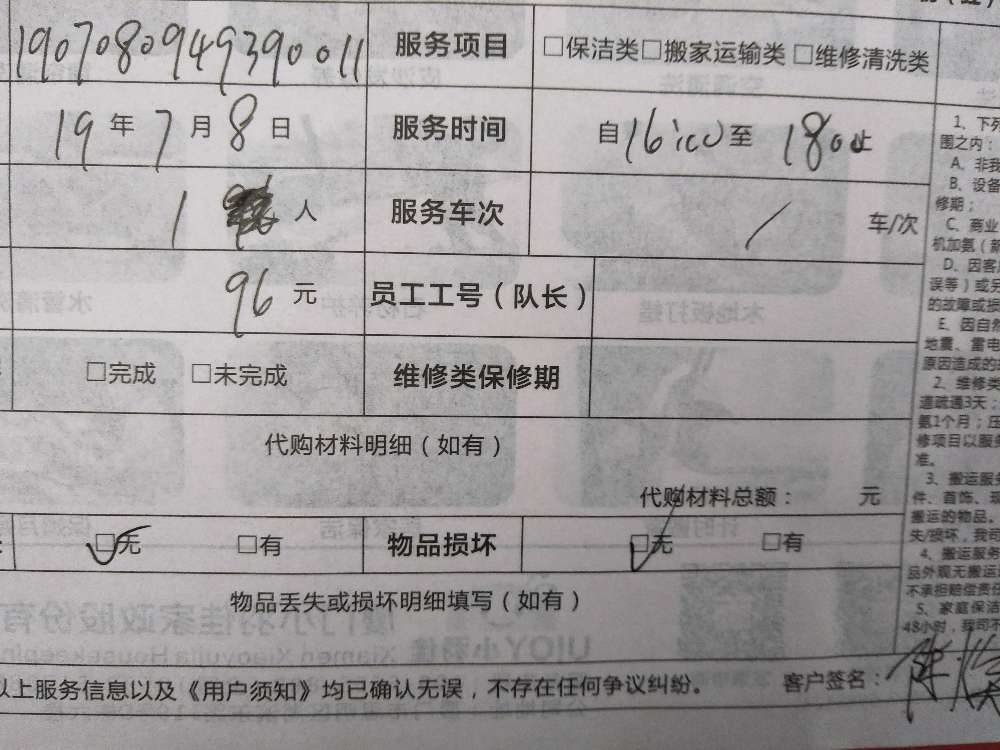 1907080949390011 服务项目 □保洁类□搬家运输类 □维修清洗类
19年7月8日 服务时间 自16:00至1800止
1 人 服务车次 / 车/次
96元 员工工号（队长）
□完成 □未完成 维修类保修期
代购材料明细（如有）
代购材料总额： 元
□无 □有 物品损坏 □无 □有
物品丢失或损坏明细填写（如有）
以上服务信息以及《用户须知》均已确认无误，不存在任何争议纠纷。 客户签名：
1、下列
围之内：
A、非我
B、设备
修期；
C、商业
机加氨（
D、因客
误等）或另
的故障或损
E、因自然
地震、雷电
原因造成的
2、维修类
道疏通3天；
氨1个月；
修项目以服务
准。
3、搬运服务
件、首饰、
搬运的物品。
失/损坏，我司
4、搬运服务
品外观无搬运
不承担赔偿责任
5、家庭保洁
48小时，我司不